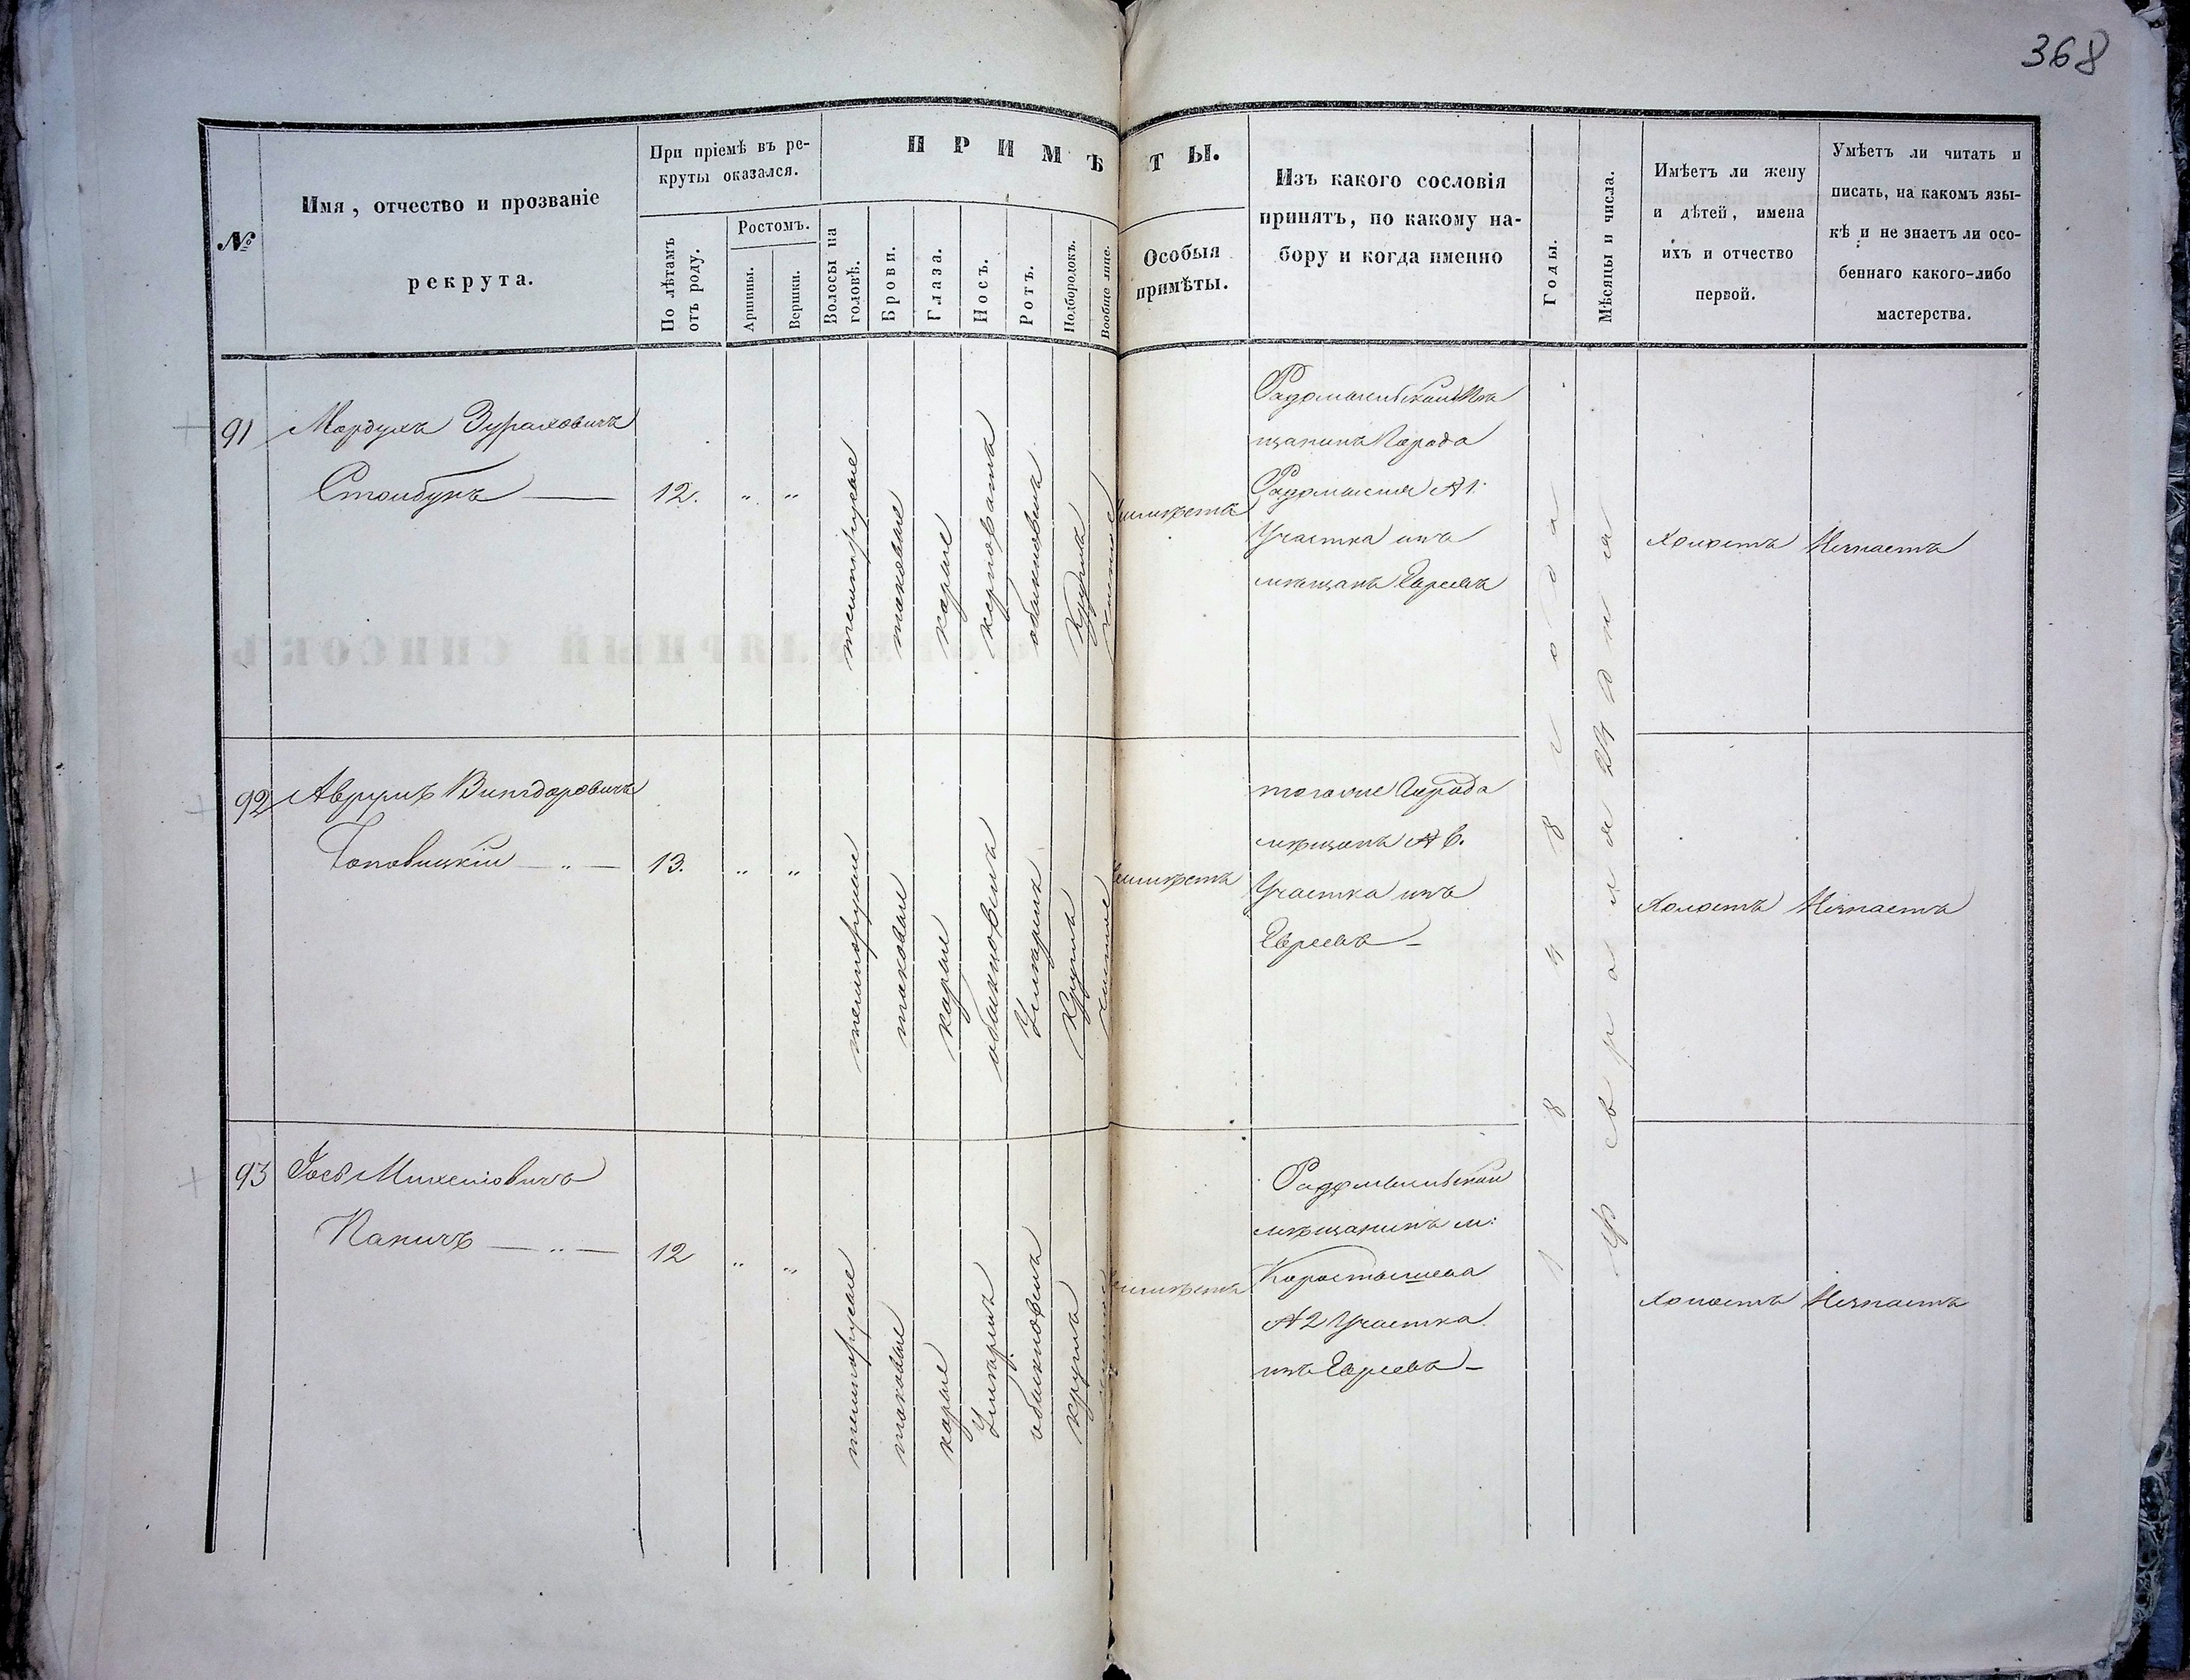 368
№
Имя, отчество и прозваніе
рекрута.
При пріемѣ въ ре-
круты оказался.
По лѣтамъ
отъ роду.
Ростомъ.
Аршины.
Вершки.
ПРИМѢТЫ.
Волосы на
головѣ.
Брови.
Глаза.
Носъ.
Ротъ.
Подбородокъ.
Вообще лице.
Особыя
примѣты.
Изъ какого сословія
принятъ, по какому на-
бору и когда именно
Годы.
Мѣсяцы и числа.
Имѣетъ ли жену
и дѣтей, имена
ихъ и отчество
первой.
Умѣетъ ли читать и
писать, на какомъ язы-
кѣ и не знаетъ ли осо-
беннаго какого-либо
мастерства.
91
Мордухъ
12.
" "
темнорусые
таковые
карые
обыкновенъ
круглъ
чистое
Радомысльскій Мѣ
щанинъ Города
Радомысля № 1
Участка изъ
мѣщанъ Евреевъ
1848 года
Февраля 24 дня
холостъ
Незнаетъ
92
Аврумъ
13.
" "
темнорусые
таковые
карые
обыкновенъ
Умѣренъ
Круглъ
чистое
неимѣетъ
тогоже Города
мѣщанъ № 6.
Участка изъ
Евреевъ —
холостъ
Незнаетъ
93
12
" "
темнорусые
таковые
карые
Умѣренъ
обыкновенъ
круглъ
неимѣетъ
Радомысльскій
мѣщанинъ м:
Коростышева
№ 2 Участка
изъ Евреевъ —
холостъ
Незнаетъ